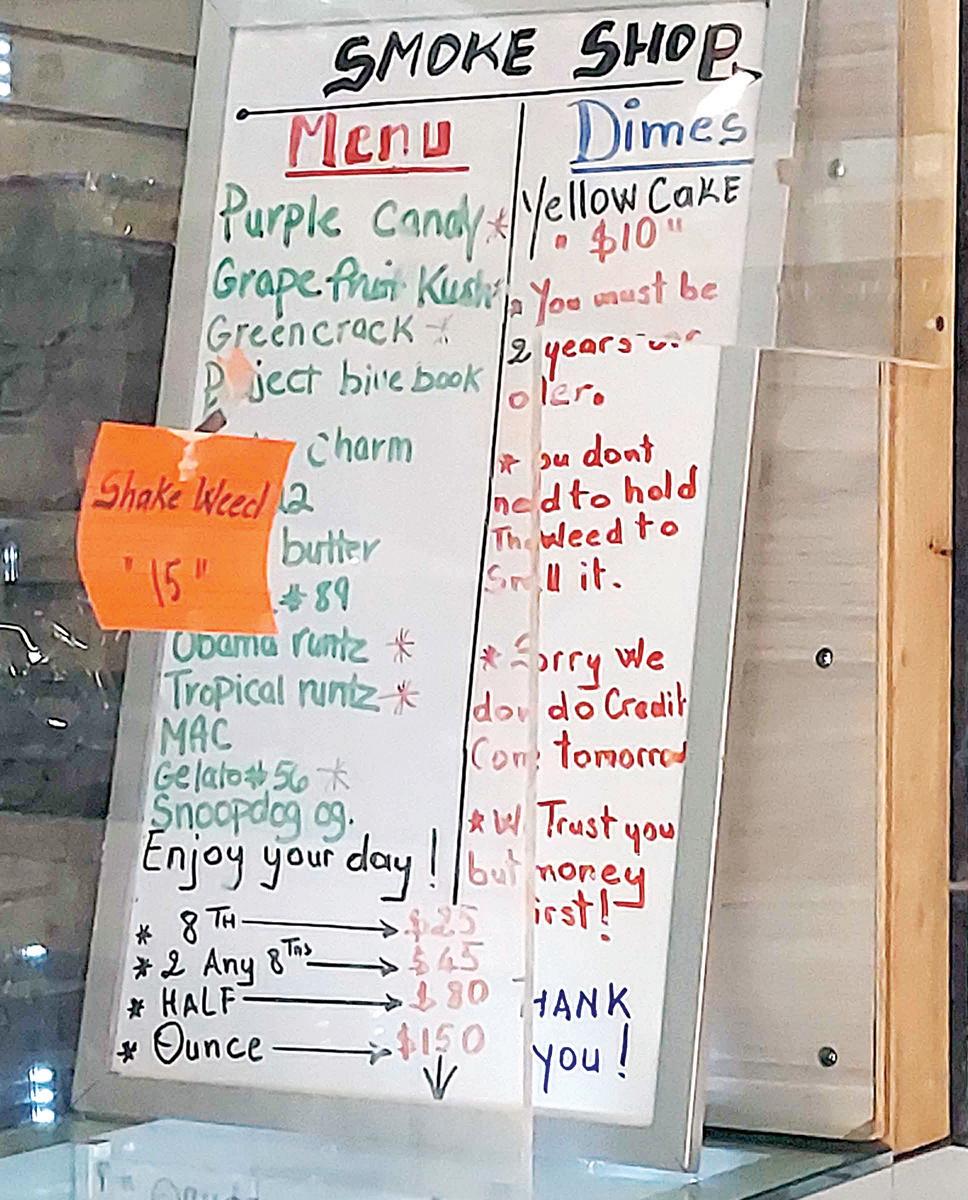 SMOKE SHOP
Menu
Purple Candy*
Grapefruit Kush
Greencrack *
ject bive book
charm
12
butter
#89
Shake Weed
"15"
Obama runtz *
Tropical runtz *
MAC
Gelato#56 *
Snoopdog og.
Enjoy your day!
* 8TH → $25
* 2 Any 8Ths → $45
* HALF → $80
* Ounce → $150
Dimes
Yellow CaKE
"$10"
You must be
2 years
oler.
* ou dont
ne d to hold
The Weed to
Sm ll it.
* Sorry We
don do Credit
Com tomorrow
* W Trust you
but money
irst!
HANK
you!